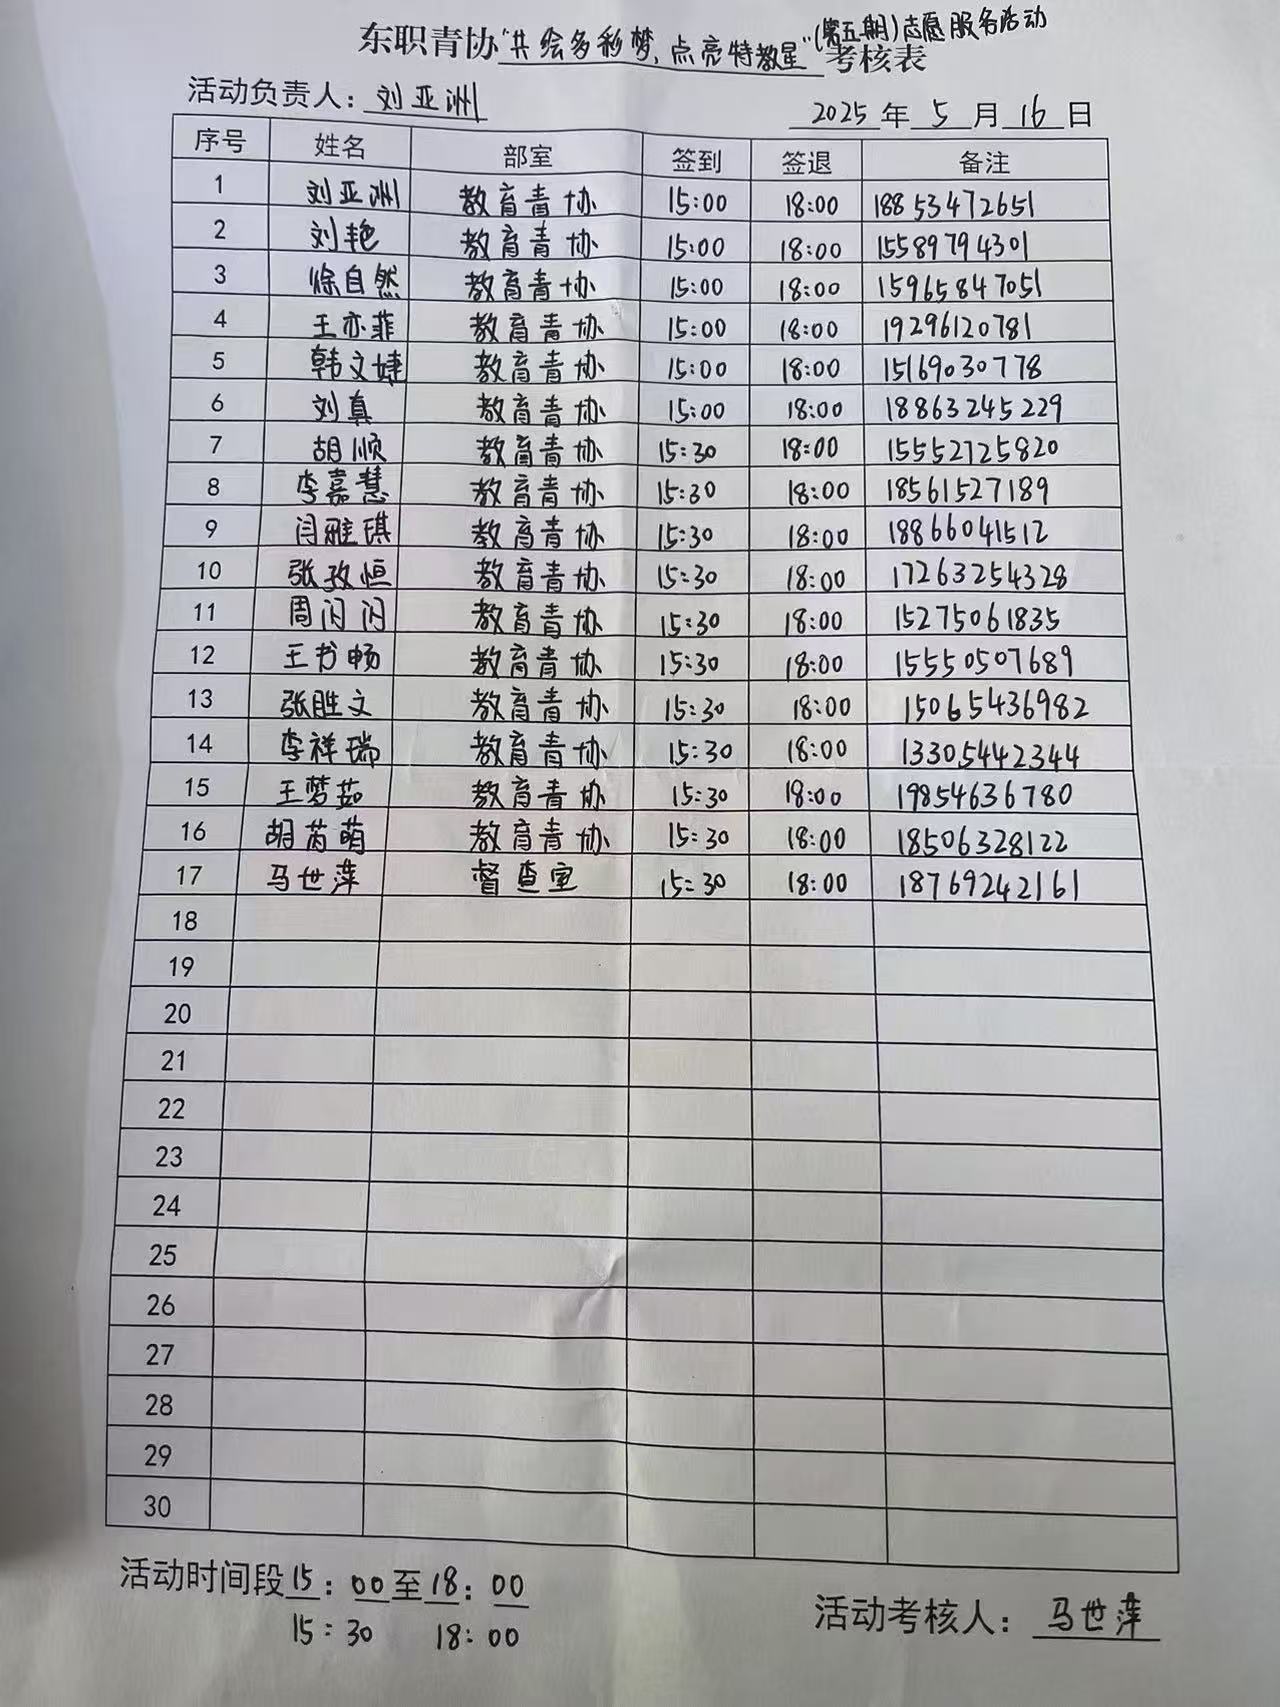 东职青协"共绘多彩梦,点亮特教星"(第五期)志愿服务活动考核表
活动负责人：刘亚洲
2025年5月16日
序号 姓名 部室 签到 签退 备注
1 刘亚洲 教育青协 15:00 18:00 18853472651
2 刘艳 教育青协 15:00 18:00 15589794301
3 徐自然 教育青协 15:00 18:00 15965847051
4 王亦菲 教育青协 15:00 18:00 19296120781
5 韩文婕 教育青协 15:00 18:00 15169030778
6 刘真 教育青协 15:00 18:00 18863245229
7 胡顺 教育青协 15:30 18:00 15552725820
8 李嘉慧 教育青协 15:30 18:00 18561527189
9 闫雅琪 教育青协 15:30 18:00 18866041512
10 张孜恒 教育青协 15:30 18:00 17263254328
11 周闪闪 教育青协 15:30 18:00 15275061835
12 王书畅 教育青协 15:30 18:00 15550507689
13 张胜文 教育青协 15:30 18:00 15065436982
14 李祥瑞 教育青协 15:30 18:00 13305442344
15 王梦茹 教育青协 15:30 18:00 19854636780
16 胡芮萌 教育青协 15:30 18:00 18506328122
17 马世萍 督查室 15:30 18:00 18769242161
18
19
20
21
22
23
24
25
26
27
28
29
30
活动时间段15:00至18:00
15:30 18:00
活动考核人：马世萍